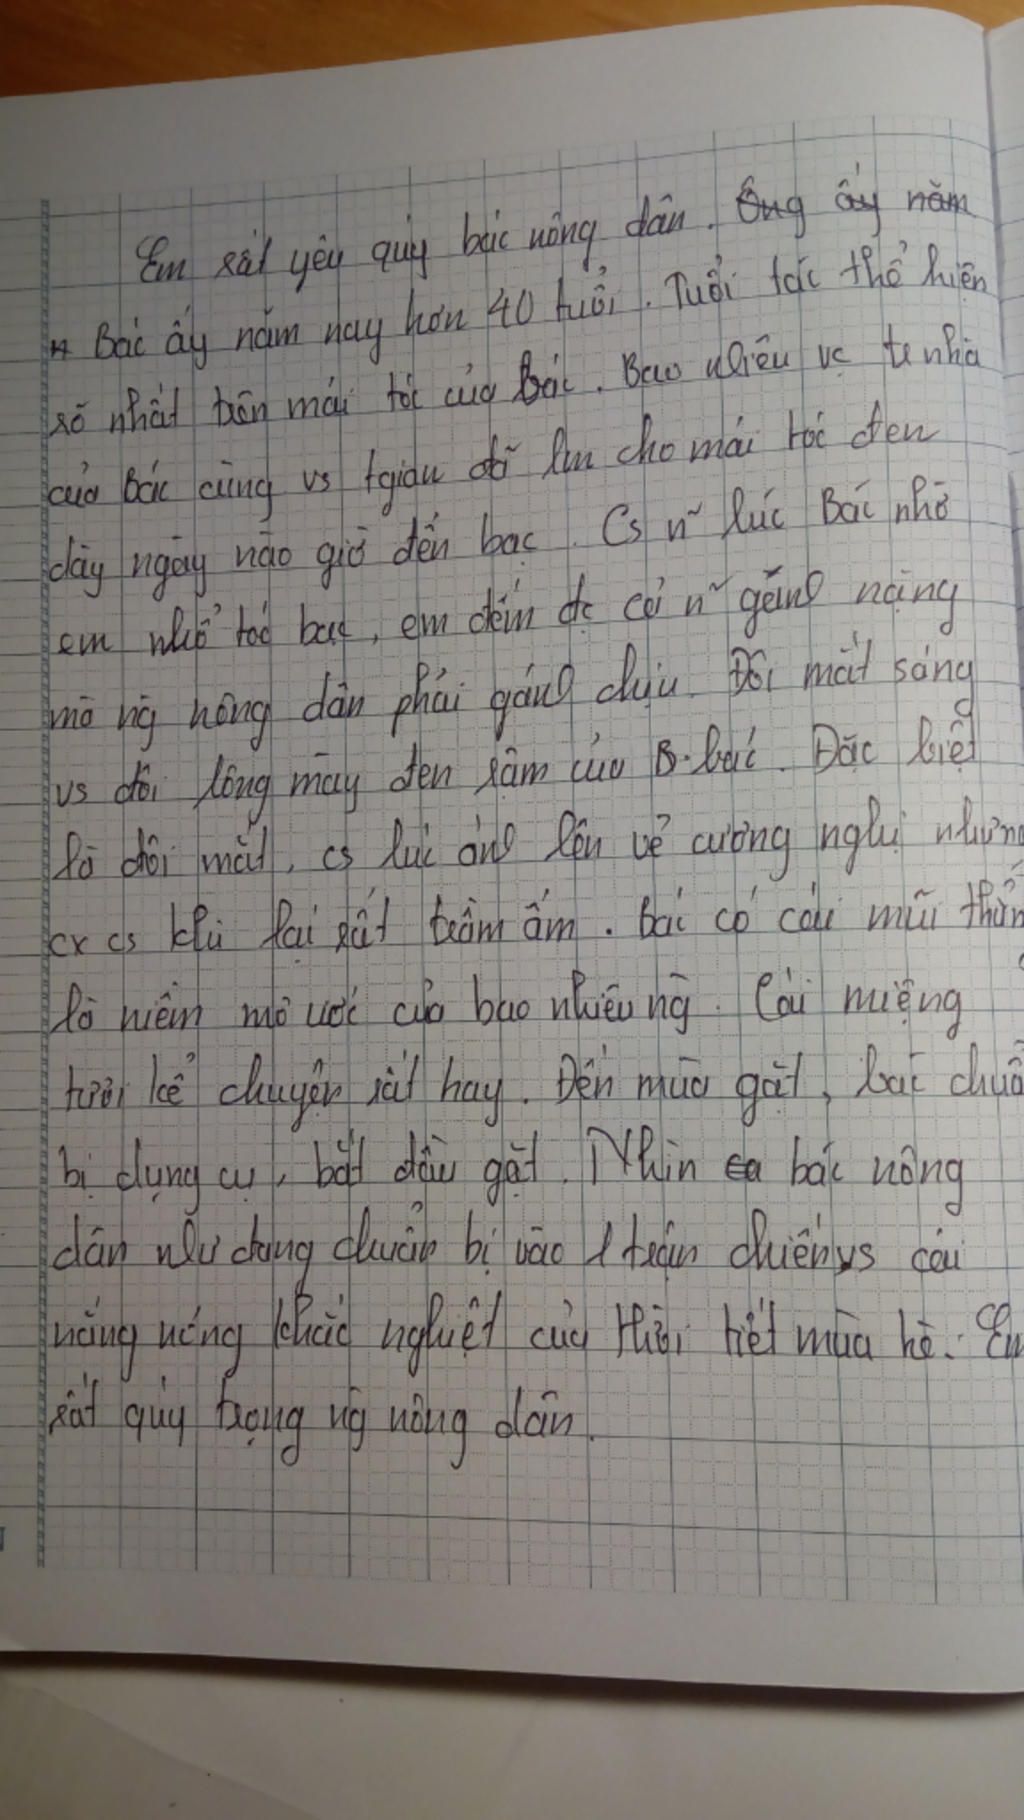 Em rất yêu quý bác nông dân. Ông ấy năm
Bác ấy năm nay hơn 40 tuổi. Tuổi tác thể hiện
rõ nhất trên mái tóc của Bác. Bao nhiêu vc tr nhà
của Bác cùng vs tgian đã lm cho mái tóc đen
dày ngày nào giờ đến bạc. Cs n~ lúc Bác nhờ
em nhổ tóc bạc, em đếm đc cả n~ gánh nặng
mà ng nông dân phải gánh chịu. Đôi mắt sáng
vs đôi lông mày đen rậm của B. bác. Đặc biệt
là đôi mắt, cs lúc ánh lên vẻ cương nghị nhưng
cx cs khi lại rất trầm ấm. bác có cái mũi thẳn
là niềm mơ ước của bao nhiêu ng. Cái miệng
tươi kể chuyện rất hay. Đến mùa gặt, bác chuẩ
bị dụng cụ, bắt đầu gặt. Nhìn ca bác nông
dân như đang chuẩn bị vào 1 trận chiến vs cái
nắng nóng khắc nghiệt của thời tiết mùa hè. Em
rất quý trọng ng nông dân.